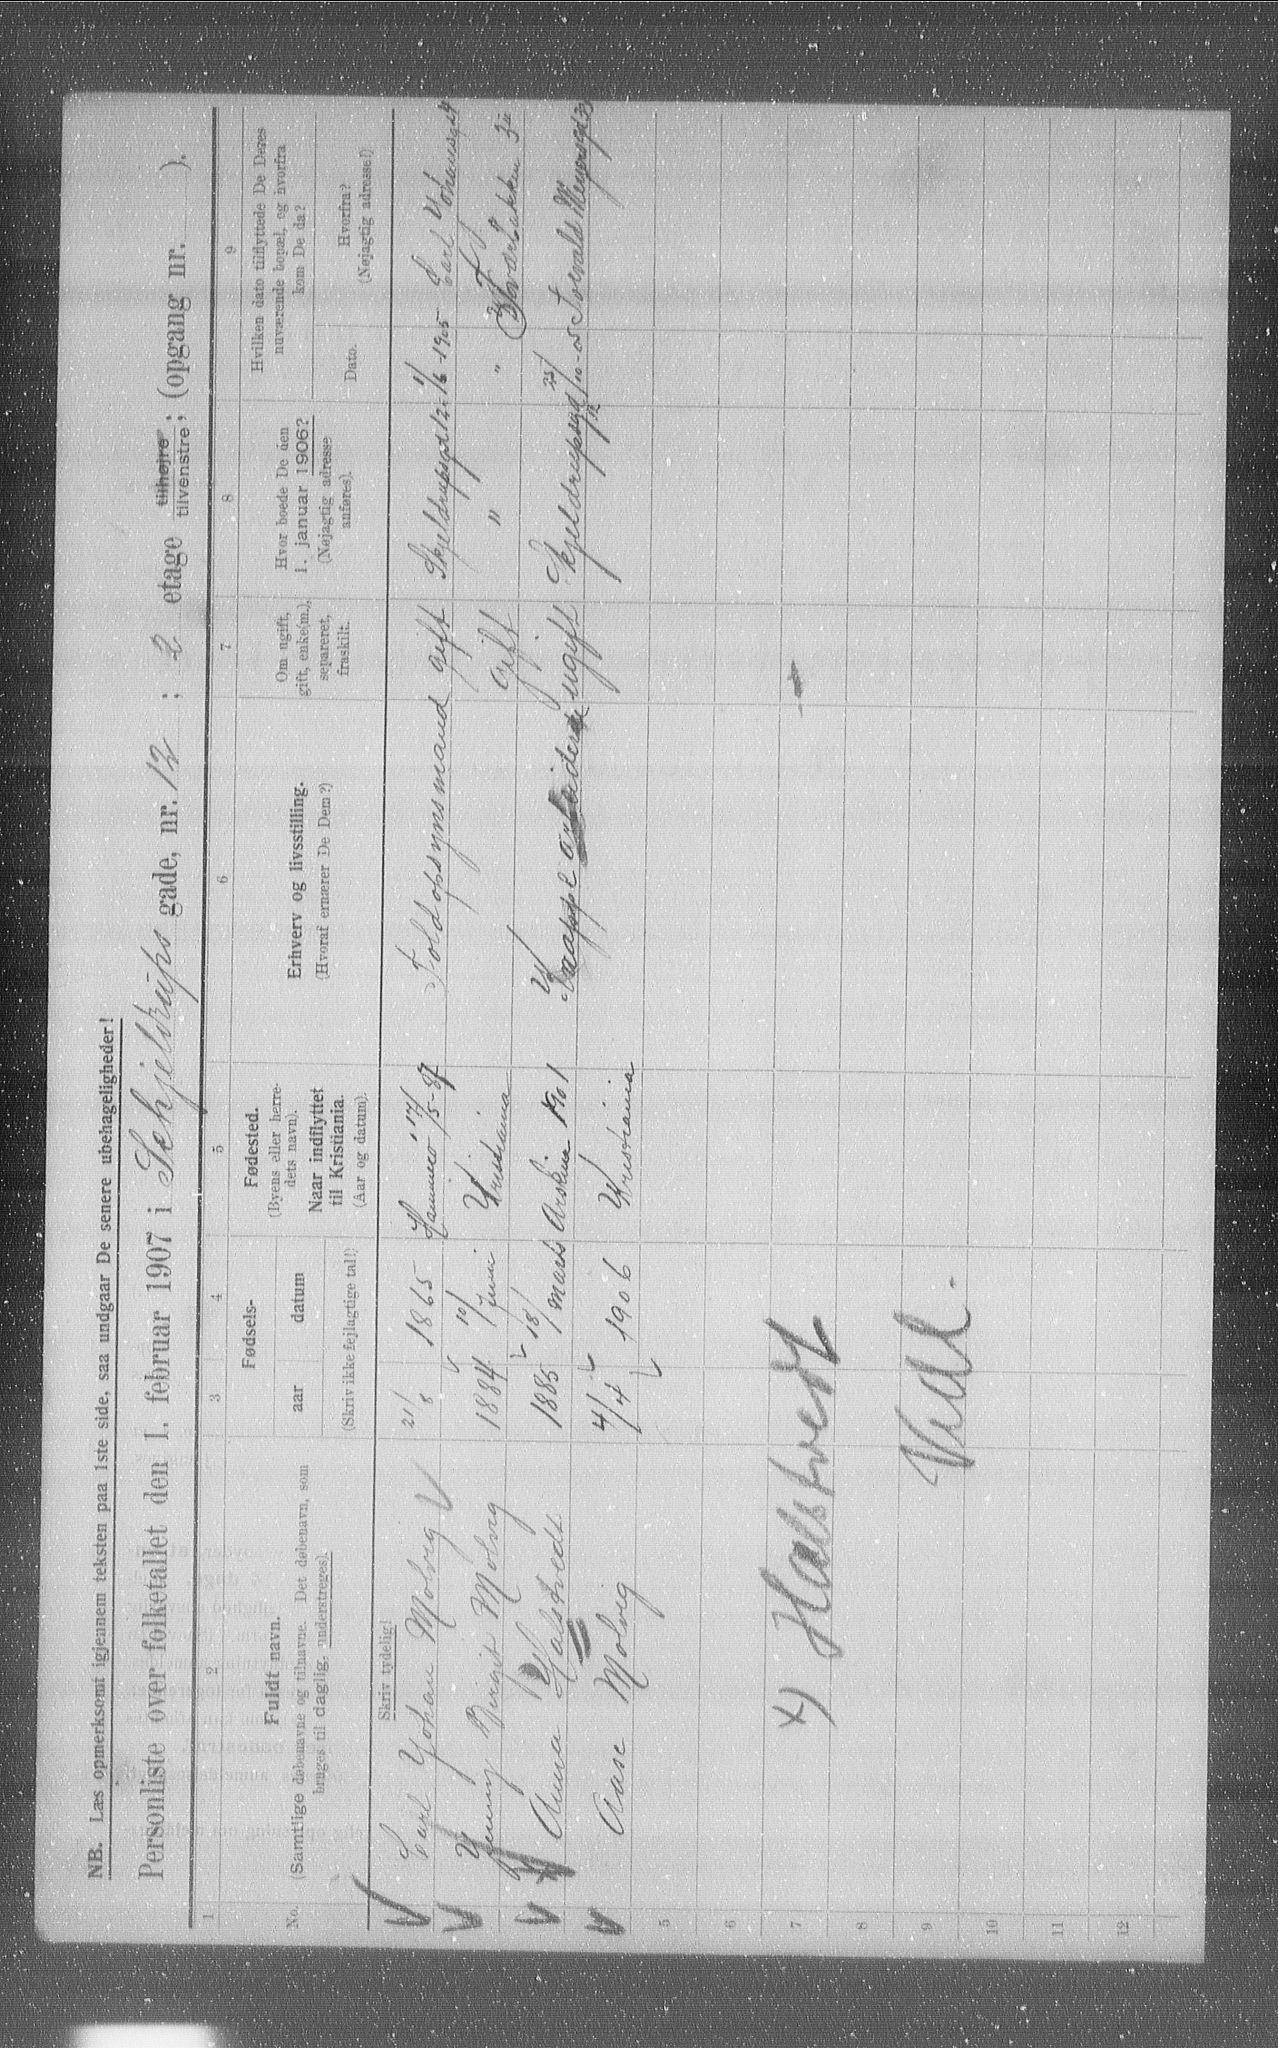 NB. Læs opmerksomt igjennem teksten paa 1ste side, saa undgaar De senere ubehageligheder!
Personliste over folketallet den 1. februar 1907 i Schjeldrups gade, nr. 12 ; 2 etage tilhøjre tilvenstre; (opgang nr. ).
1 2 3 4 5 6 7 8 9
No.
Fuldt navn.
(Samtlige døbenavne og tilnavne. Det døbenavn, som
bruges til daglig, understreges).
Skriv tydelig!
Fødsels-
aar datum
(Skriv ikke fejlagtige tal!)
Fødested.
(Byens eller herre-
dets navn).
Naar indflyttet
til Kristiania.
(Aar og datum).
Erhverv og livsstilling.
(Hvoraf ernærer De Dem?)
Om ugift,
gift, enke(m.),
separeret,
fraskilt.
Hvor boede De den
1. januar 1906?
(Nøjagtig adresse
anføres).
Hvilken dato tilflyttede De Deres
nuværende bopæl, og hvorfra
kom De da?
Dato.
Hvorfra?
(Nøjagtig adresse!)
Carl Johan Molvig 21/8 1865 17/5-87 Toldopsynsmand gift Skjeldrupsgt 12 1/6-1905 Carl Johansgt
Jenny Birgit Molvig 1884 10/Juni Kristiania gift " "
Anna Halstvedt 1885 18/marts 1901 ugift Skjeldrupsgd 12 Torvald Meyersgd
Aase Molvig 4/4 1906 Kristiania
5
6
7
x) Halstvedt
8
9
10
11
12